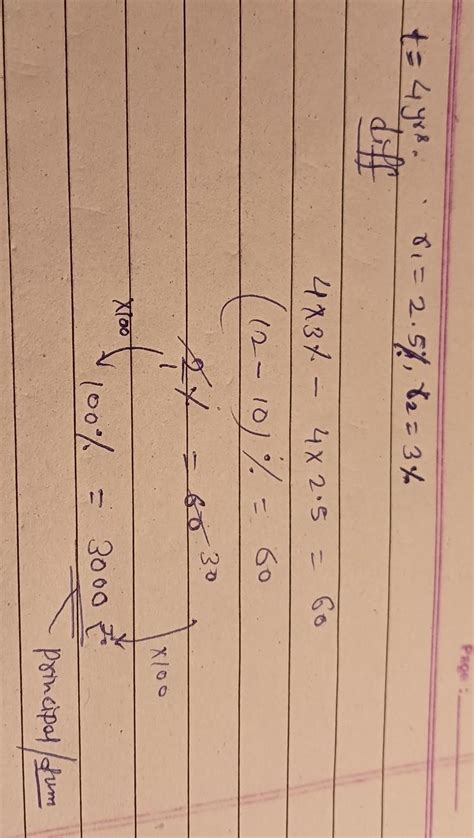 Page:
t = 4yrs. r₁ = 2.5%, r₂ = 3%
diff
4x3% - 4x2.5 = 60
(12-10)% = 60
2% = 60 30
1
x100 x100
100% = 3000 ₹
Principal/sum